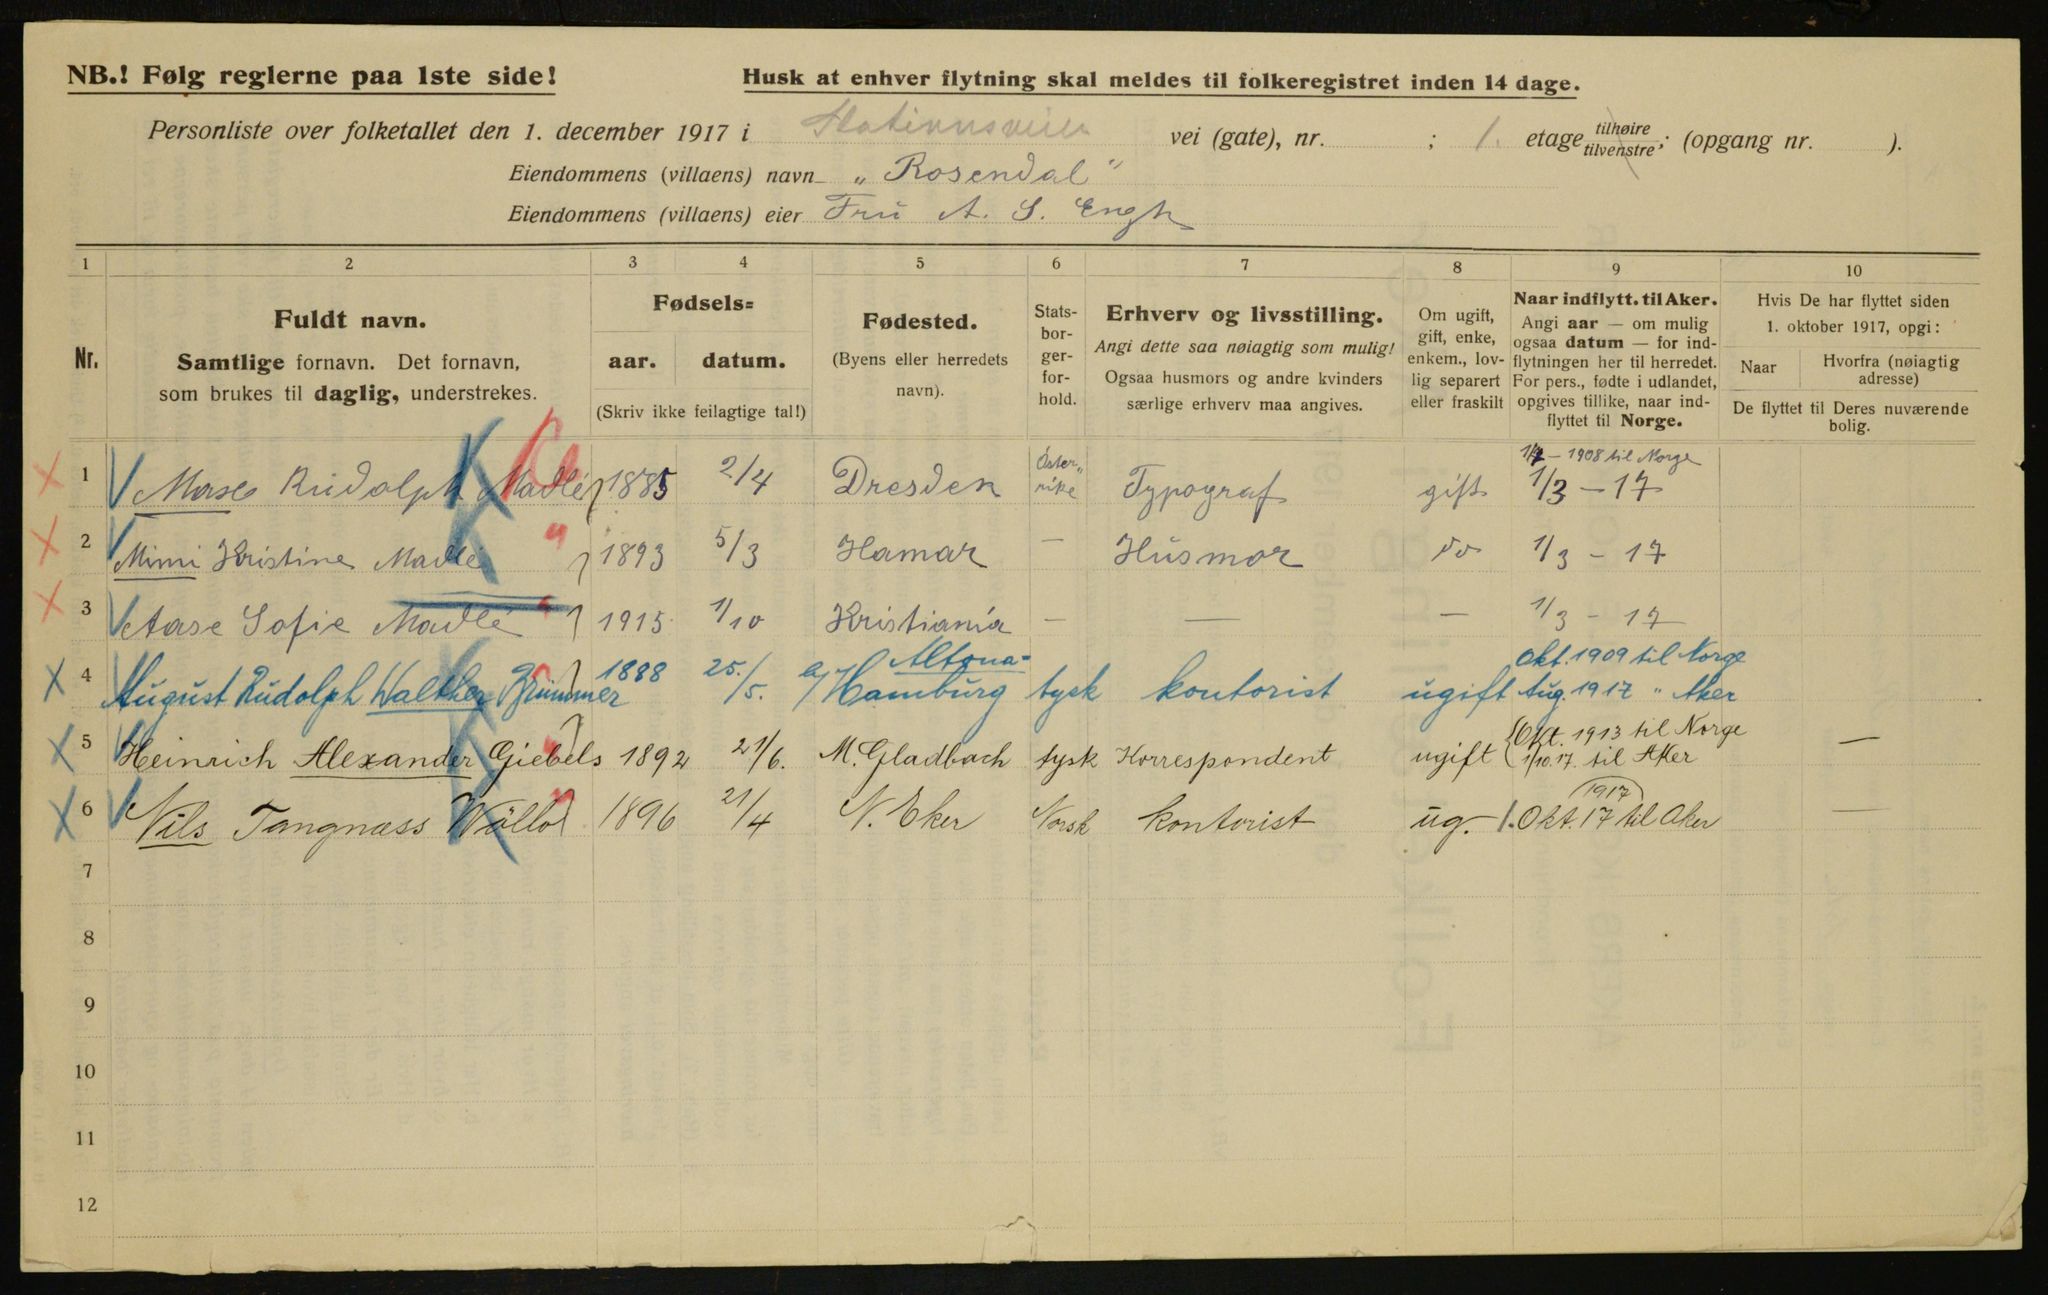 NB.! Følg reglerne paa 1ste side!
Husk at enhver flytning skal meldes til folkeregistret inden 14 dage.
Personliste over folketallet den 1. december 1917 i Stationsveien vei (gate), nr. ; 1. etage tilhøire tilvenstre; (opgang nr. ).
Eiendommens (villaens) navn „Rosendal"
Eiendommens (villaens) eier Fru A. S. Engh
1 2 3 4 5 6 7 8 9 10
Nr.
Fuldt navn.
Samtlige fornavn. Det fornavn,
som brukes til daglig, understrekes.
Fødsels=
aar. datum.
(Skriv ikke feilagtige tal!)
Fødested.
(Byens eller herredets
navn).
Stats-
bor-
ger-
for-
hold.
Erhverv og livsstilling.
Angi dette saa nøiagtig som mulig!
Ogsaa husmors og andre kvinders
særlige erhverv maa angives.
Om ugift,
gift, enke,
enkem., lov-
lig separert
eller fraskilt
Naar indflytt. til Aker.
Angi aar — om mulig
ogsaa datum — for ind-
flytningen her til herredet.
For pers., fødte i udlandet,
opgives tillike, naar ind-
flyttet til Norge.
Hvis De har flyttet siden
1. oktober 1917, opgi:
Naar
Hvorfra (nøiagtig
adresse)
De flyttet til Deres nuværende
bolig.
1908 til Norge
1 Rudolph Madlé 1885 2/4 Dresden Öster„rike Typograf gift 1/3 – 17
2 Mimi Kristine Madlé " 1893 5/3 Hamar — Husmor do 1/3 – 17
3 Aase Sofie Madlé " 1915 1/10 Kristiania — — — 1/3 – 17
Altona- Okt. 1909 til Norge
4 August Rudolph Walther Brümmer 1888 25./5. Hamburg tysk kontorist ugift Aug. 1917 " Aker
Okt. 1913 til Norge
5 Heinrich Alexander Giebels " 1892 21/6. M. Gladbach tysk Korrespondent ugift 1/10.17. til Aker —
1917
6 Nils Tangnæss Wöllo " 1896 21/4 N. Eker Norsk kontorist ug. 1. Okt. 17 til Aker —
7
8
9
10
11
12